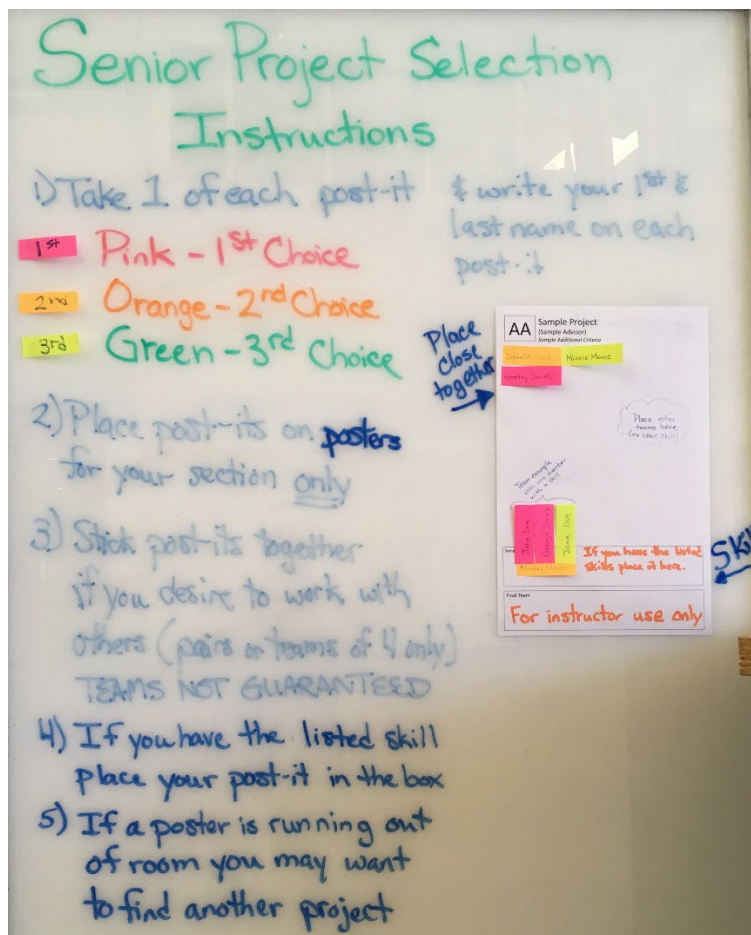 Senior Project Selection
Instructions
1) Take 1 of each post-it
& write your 1st &
last name on each
post-it
1st Pink - 1st Choice
2nd Orange - 2nd Choice
3rd Green - 3rd Choice
2) Place post-its on posters
for your section only
3) Stick post-its together
if you desire to work with
others (pairs or teams of 4 only)
TEAMS NOT GUARANTEED
4) If you have the listed skill
place your post-it in the box
5) If a poster is running out
of room you may want
to find another project
Place
close
together
AA
Sample Project
(Sample Advisor)
Sample Additional Criteria
Minnie Mouse
Place other
teams here
(no listed skill)
Team example
with one member
with a skill
John Doe
Jane Doe
If you have the listed
skills place it here.
Final Team
For instructor use only